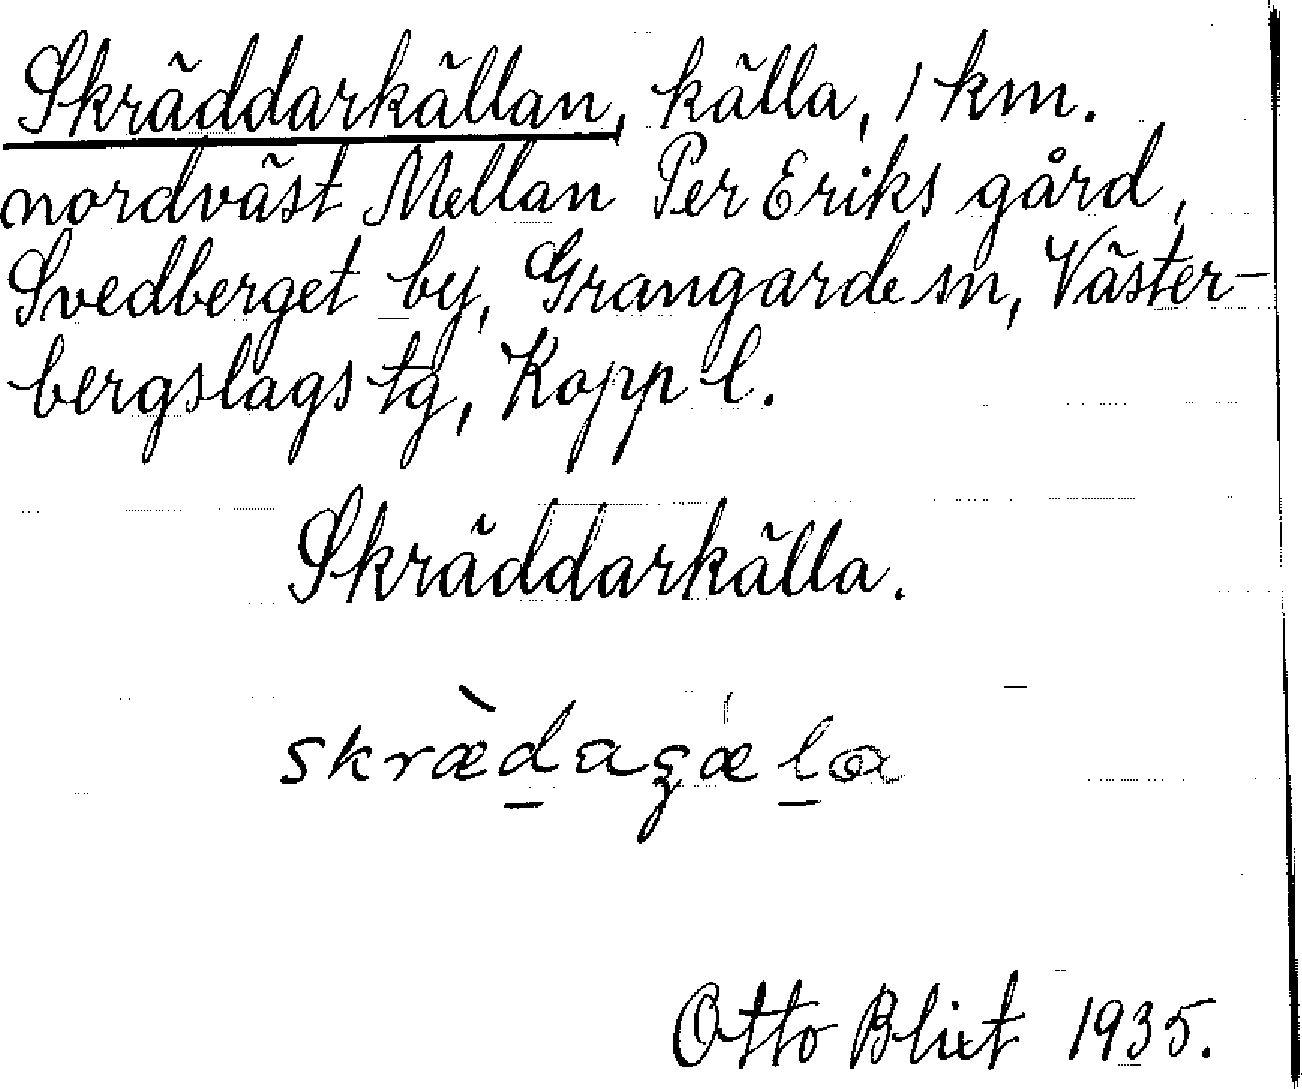 Skräddarkällan, källa, 1 km.
nordväst Mellan Per Eriks gård,
Svedberget by, Grangarde sn, Väster-
bergslags tg, Kopp l.
Skräddarkälla.
Otto Blixt 1935.